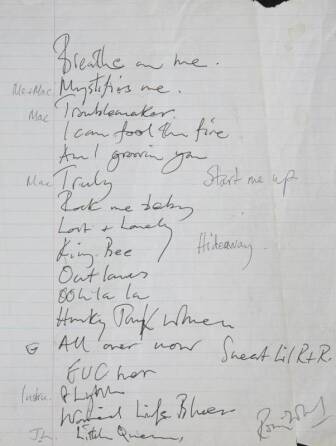 Breathe on me.
Me+Mac Mystifies me.
Mac Troublemaker
I can feel the fire
Am I groovin you
Mac Truly Start me up
Rock me baby
Lost + Lonely
King Bee Hideaway.
Outlaws
OOh la la
Honky Tonk Women
G All over now Sweet Lil R+R.
F.U.C her
Worried Life Blues
Little Queenie,